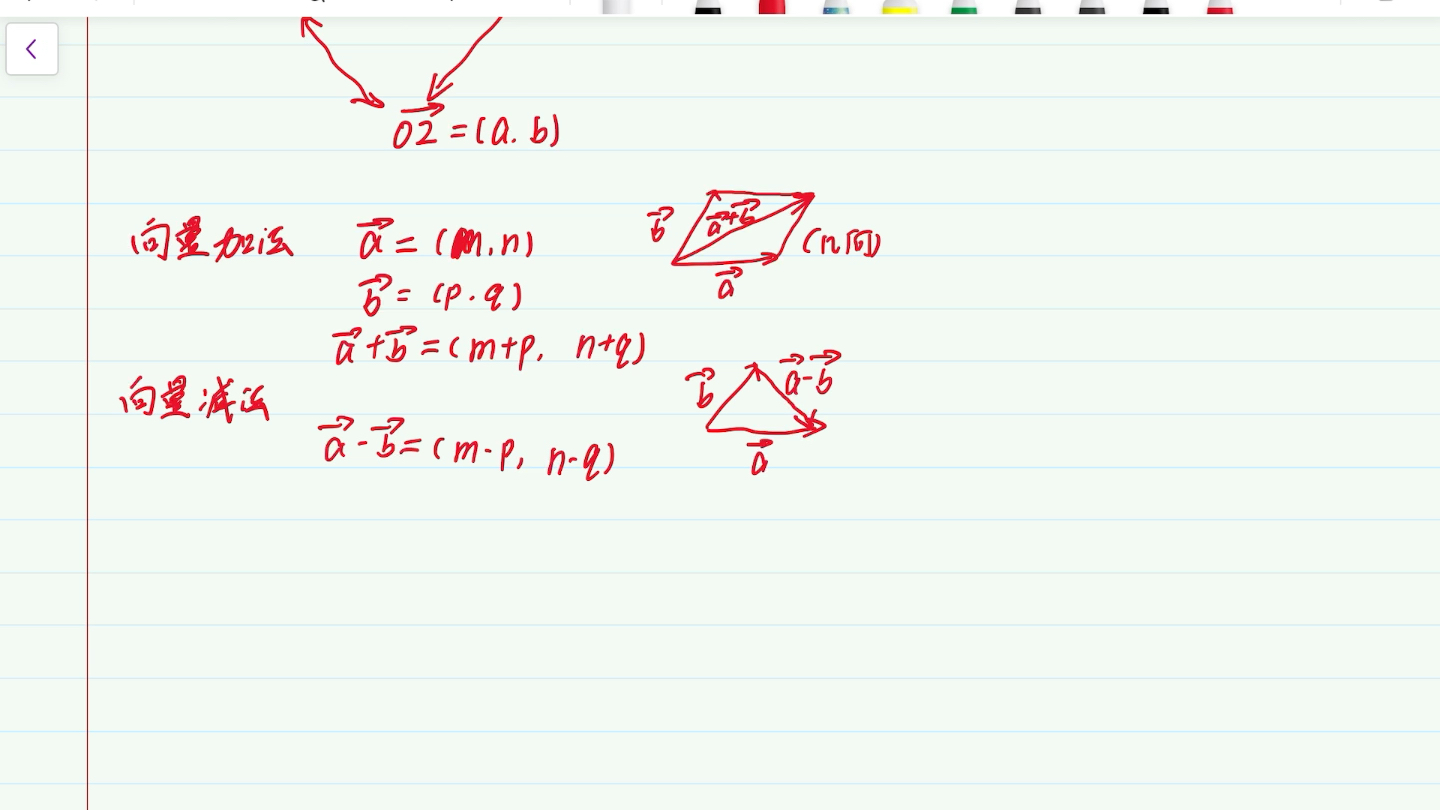 OZ = (a. b)
向量加法 a = (m, n)
b = (p. q)
a + b = (m+p, n+q)
b
a+b
a
向量减法
a - b = (m-p, n-q)
b
a-b
a